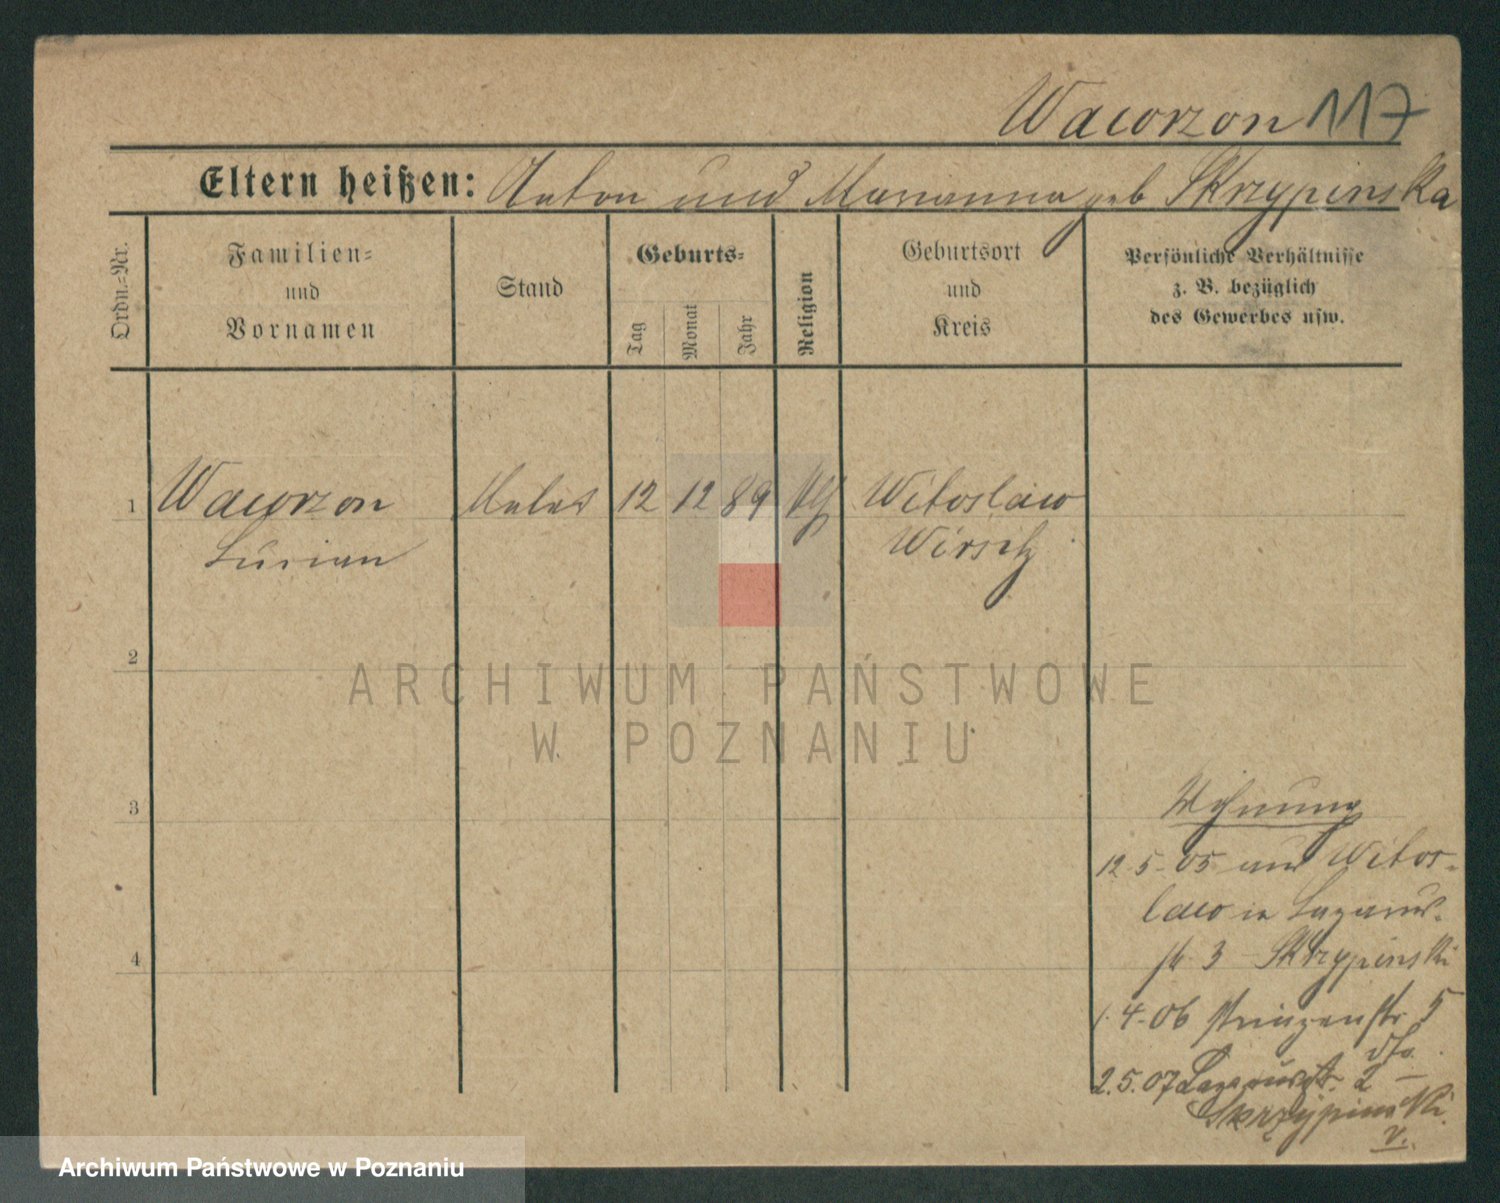 Wawrzon 117
Eltern heißen: Anton und Marianna geb Skrzypinska
Ordn.-Nr.
Familien-
und
Vornamen
Stand
Geburts-
Tag
Monat
Jahr
Religion
Geburtsort
und
Kreis
Persönliche Verhältnisse
z. B. bezüglich
des Gewerbes usw.
1 Wawrzon 12 12 89 Witoslaw
Lucian Wirsitz
2
3
4
Wohnung
12-5-05 aus Witos-
law in Lazarus-
str 3 - Skrzypinski
1.4-06 Prinzenstr. 5
dto.
2.5.07 Lazarusstr. 2 -
Skrzypinski
v.
ARCHIWUM PAŃSTWOWE
W POZNANIU
Archiwum Państwowe w Poznaniu